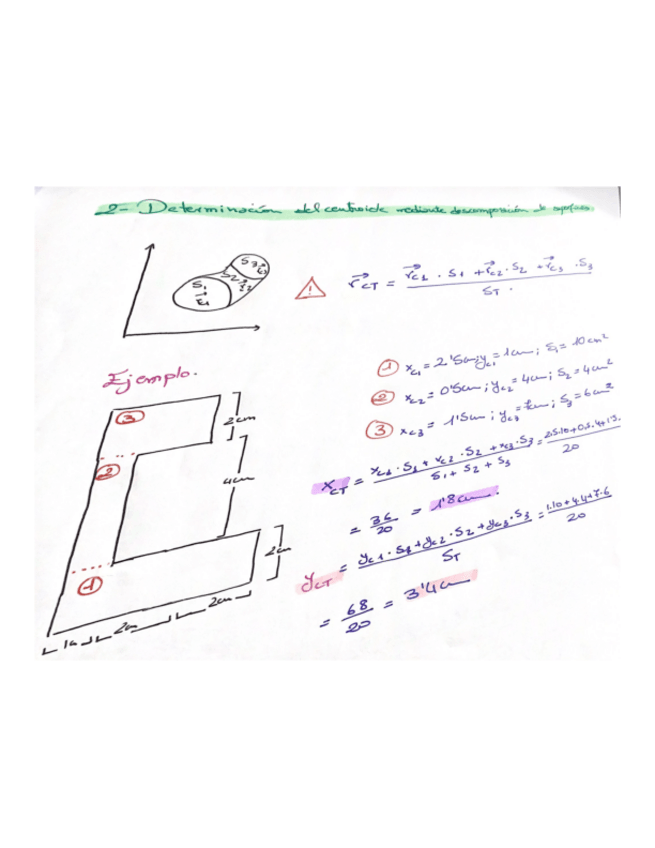 2- Determinación del centroide mediante descomposición de superficies
S₁ r⃗c₁ S₂ r⃗c₂ S₃ r⃗c₃
! r⃗CT = (r⃗c1 · S₁ + r⃗c2 · S₂ + r⃗c3 · S₃) / ST
Ejemplo.
③ 2cm
② 4cm
① 2cm
2cm 2cm
① xc₁ = 2'5cm; yc₁ = 1cm; S₁ = 10cm²
② xc₂ = 0'5cm; yc₂ = 4cm; S₂ = 4cm²
③ xc₃ = 1'5cm; yc₃ = 7cm; S₃ = 6cm²
xCT = (xc₁ · S₁ + xc₂ · S₂ + xc₃ · S₃) / (S₁ + S₂ + S₃) = 2'5.10+0'5.4+1'5. / 20
= 36/20 = 1'8cm.
yCT = (yc1 · S₁ + yc2 · S₂ + yc3 · S₃) / ST = (1.10+4.4+7.6) / 20
= 68/20 = 3'4cm